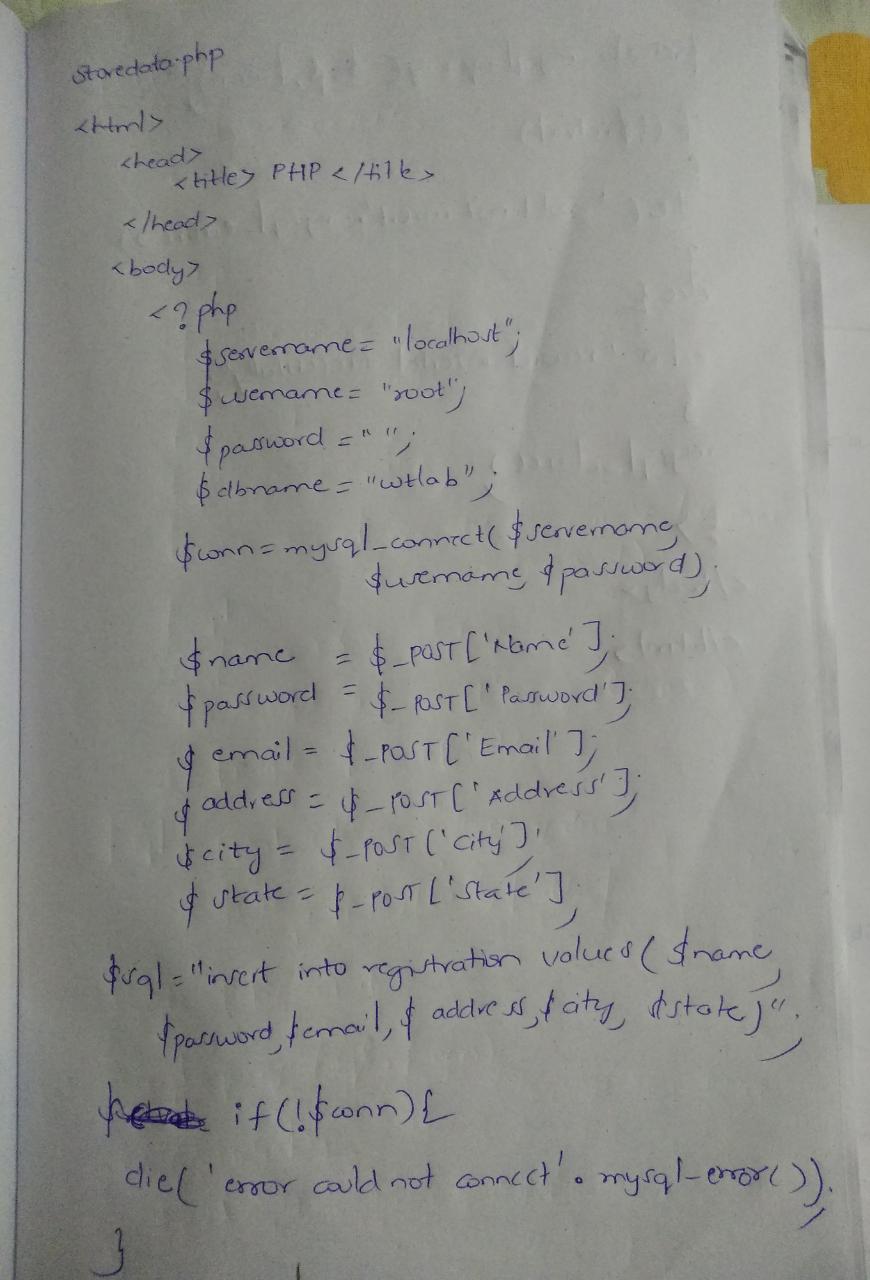 Storedata.php
<html>
<head>
<title> PHP </title>
</head>
<body>
<? php
$servername = "localhost";
$username = "root";
$password = " ";
$dbname = "wtlab";
$conn = mysql_connect( $servername,
$username, $password);
$name = $_POST['Name'];
$password = $_POST['Password'];
$email = $_POST['Email'];
$address = $_POST['Address'];
$city = $_POST['City'];
$state = $_POST['State'];
$sql = "insert into registration values( $name,
$password, $email, $address, $city, $state)";
if(!$conn){
die( 'error could not connect' . mysql_error());
}